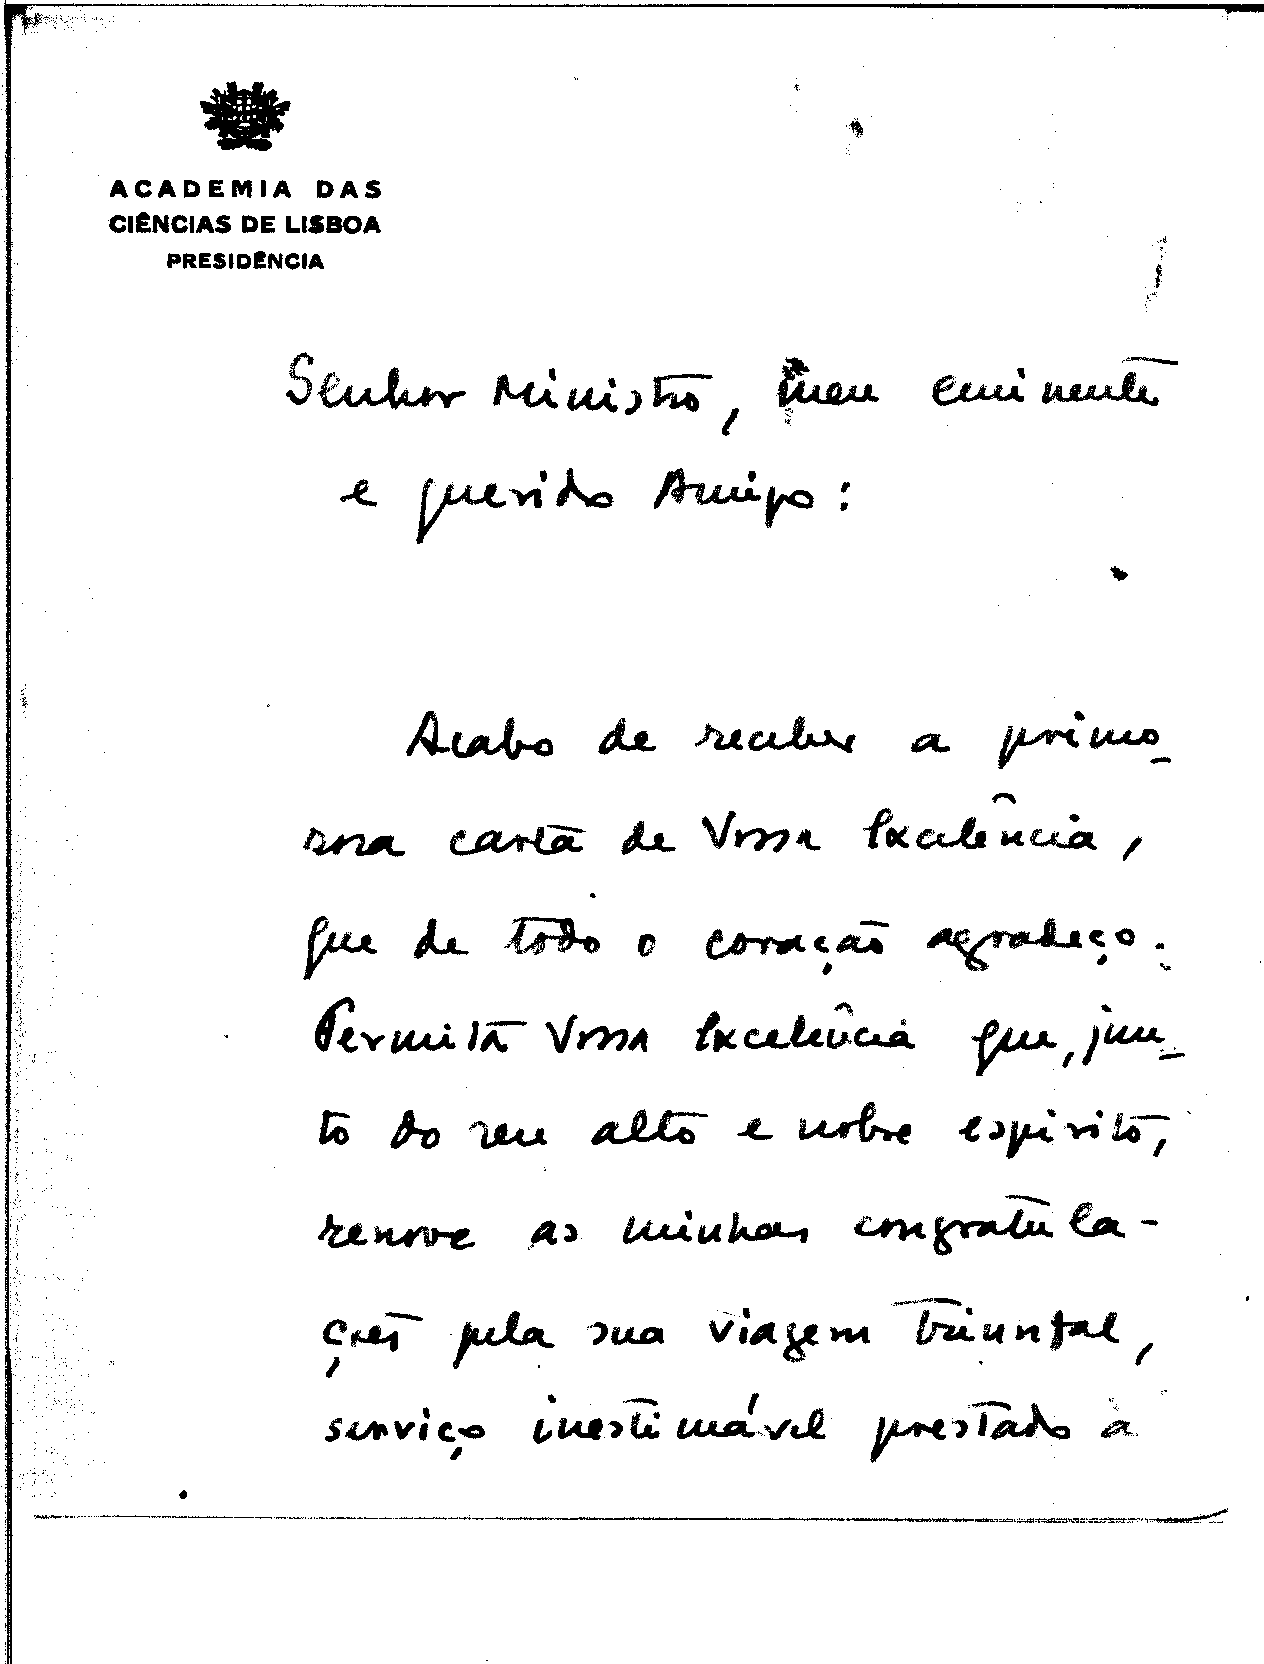 ACADEMIA DAS
CIÊNCIAS DE LISBOA
PRESIDÊNCIA
Senhor Ministro, meu eminente
e querido Amigo:
Acabo de receber a primo-
rosa carta de Vossa Excelência,
que de todo o coração agradeço.
Permita Vossa Excelência que, jun-
to do seu alto e nobre espirito,
renove as minhas congratula-
ções pela sua viagem triunfal,
serviço inestimável prestado à